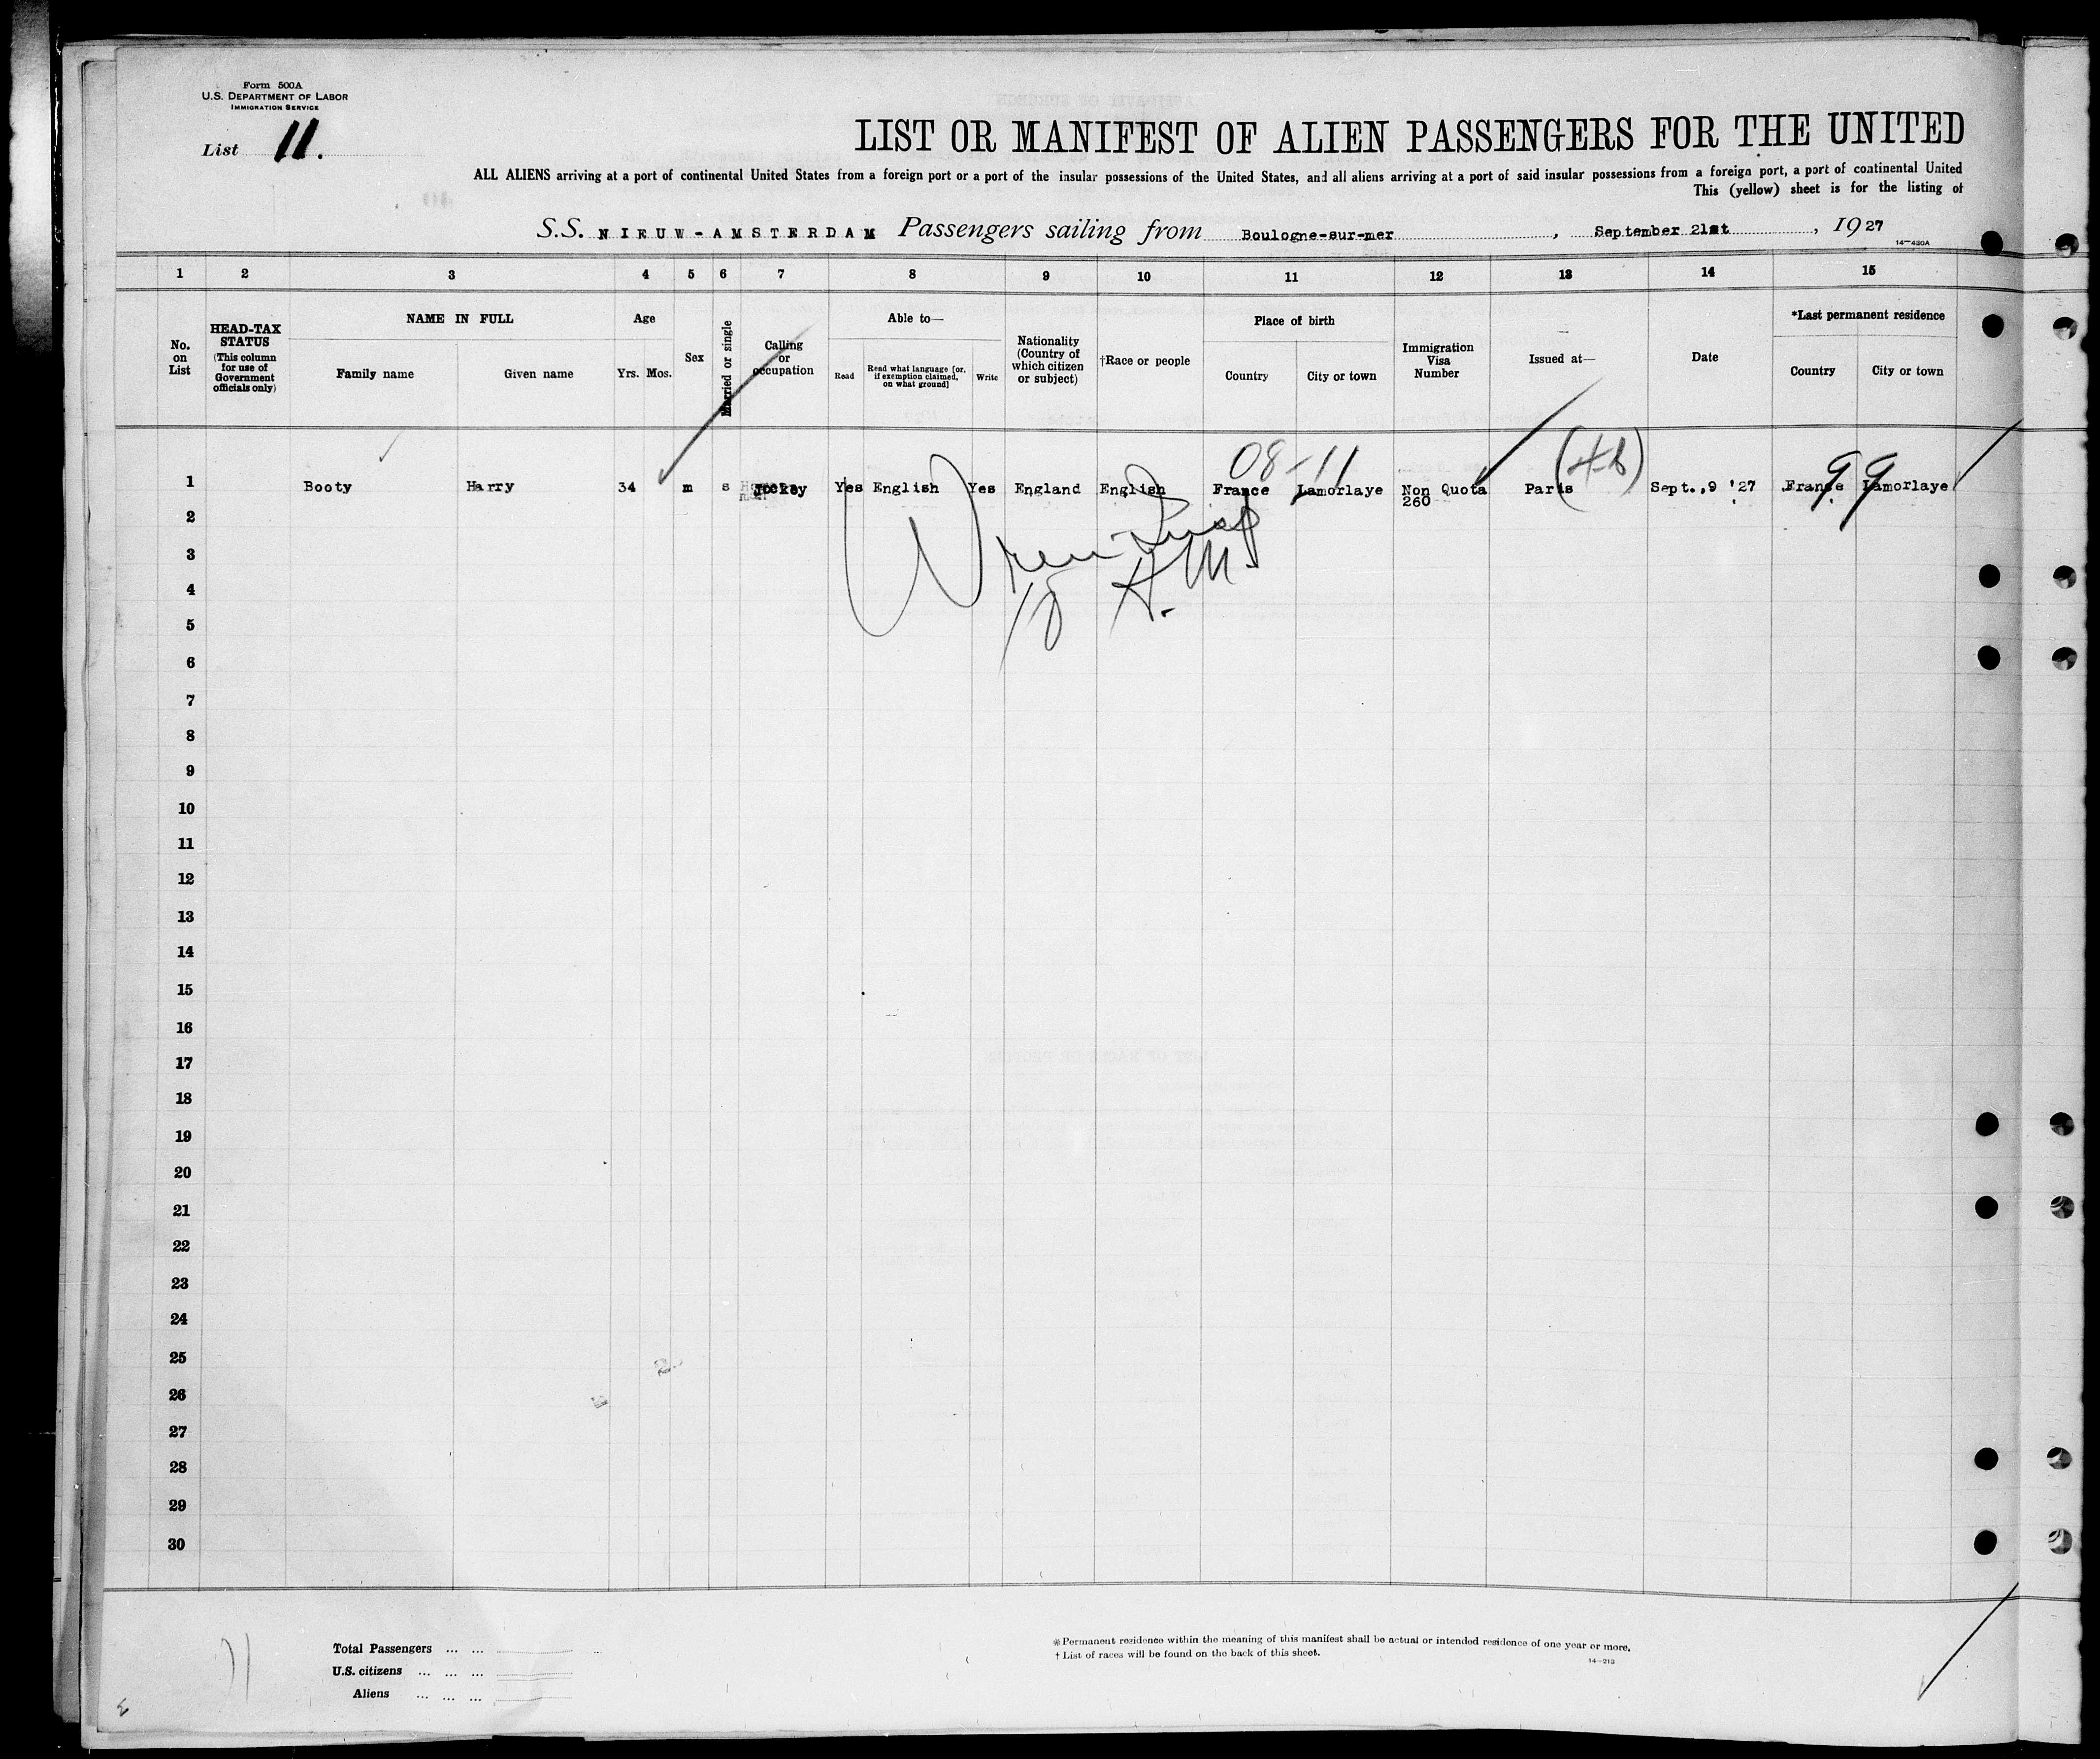 Form 500A
U.S. DEPARTMENT OF LABOR
IMMIGRATION SERVICE
List 11.
LIST OR MANIFEST OF ALIEN PASSENGERS FOR THE UNITED
ALL ALIENS arriving at a port of continental United States from a foreign port or a port of the insular possessions of the United States, and all aliens arriving at a port of said insular possessions from a foreign port, a port of continental United
This (yellow) sheet is for the listing of
S.S. NIEUW-AMSTERDAM Passengers sailing from Boulogne-sur-mer, September 21st, 1927
14-430A
1 2 3 4 5 6 7 8 9 10 11 12 13 14 15
No. on List
HEAD-TAX STATUS (This column for use of Government officials only)
NAME IN FULL
Family name Given name
Age
Yrs. Mos.
Sex
Married or single
Calling or occupation
Able to—
Read Read what language [or, if exemption claimed, on what ground] Write
Nationality (Country of which citizen or subject)
†Race or people
Place of birth
Country City or town
Immigration Visa Number
Issued at—
Date
*Last permanent residence
Country City or town
08-11 (4-b) 99
1 Booty Harry 34 m s Jockey Yes English Yes England English France Lamorlaye Non Quota 260 Paris Sept.,9 '27 France Lamorlaye
2
3
4
5
6
7
8
9
10
11
12
13
14
15
16
17
18
19
20
21
22
23
24
25
26
27
28
29
30
Total Passengers ... ...
U.S. citizens ... ... ...
Aliens ... ... ...
* Permanent residence within the meaning of this manifest shall be actual or intended residence of one year or more.
† List of races will be found on the back of this sheet.
14-213